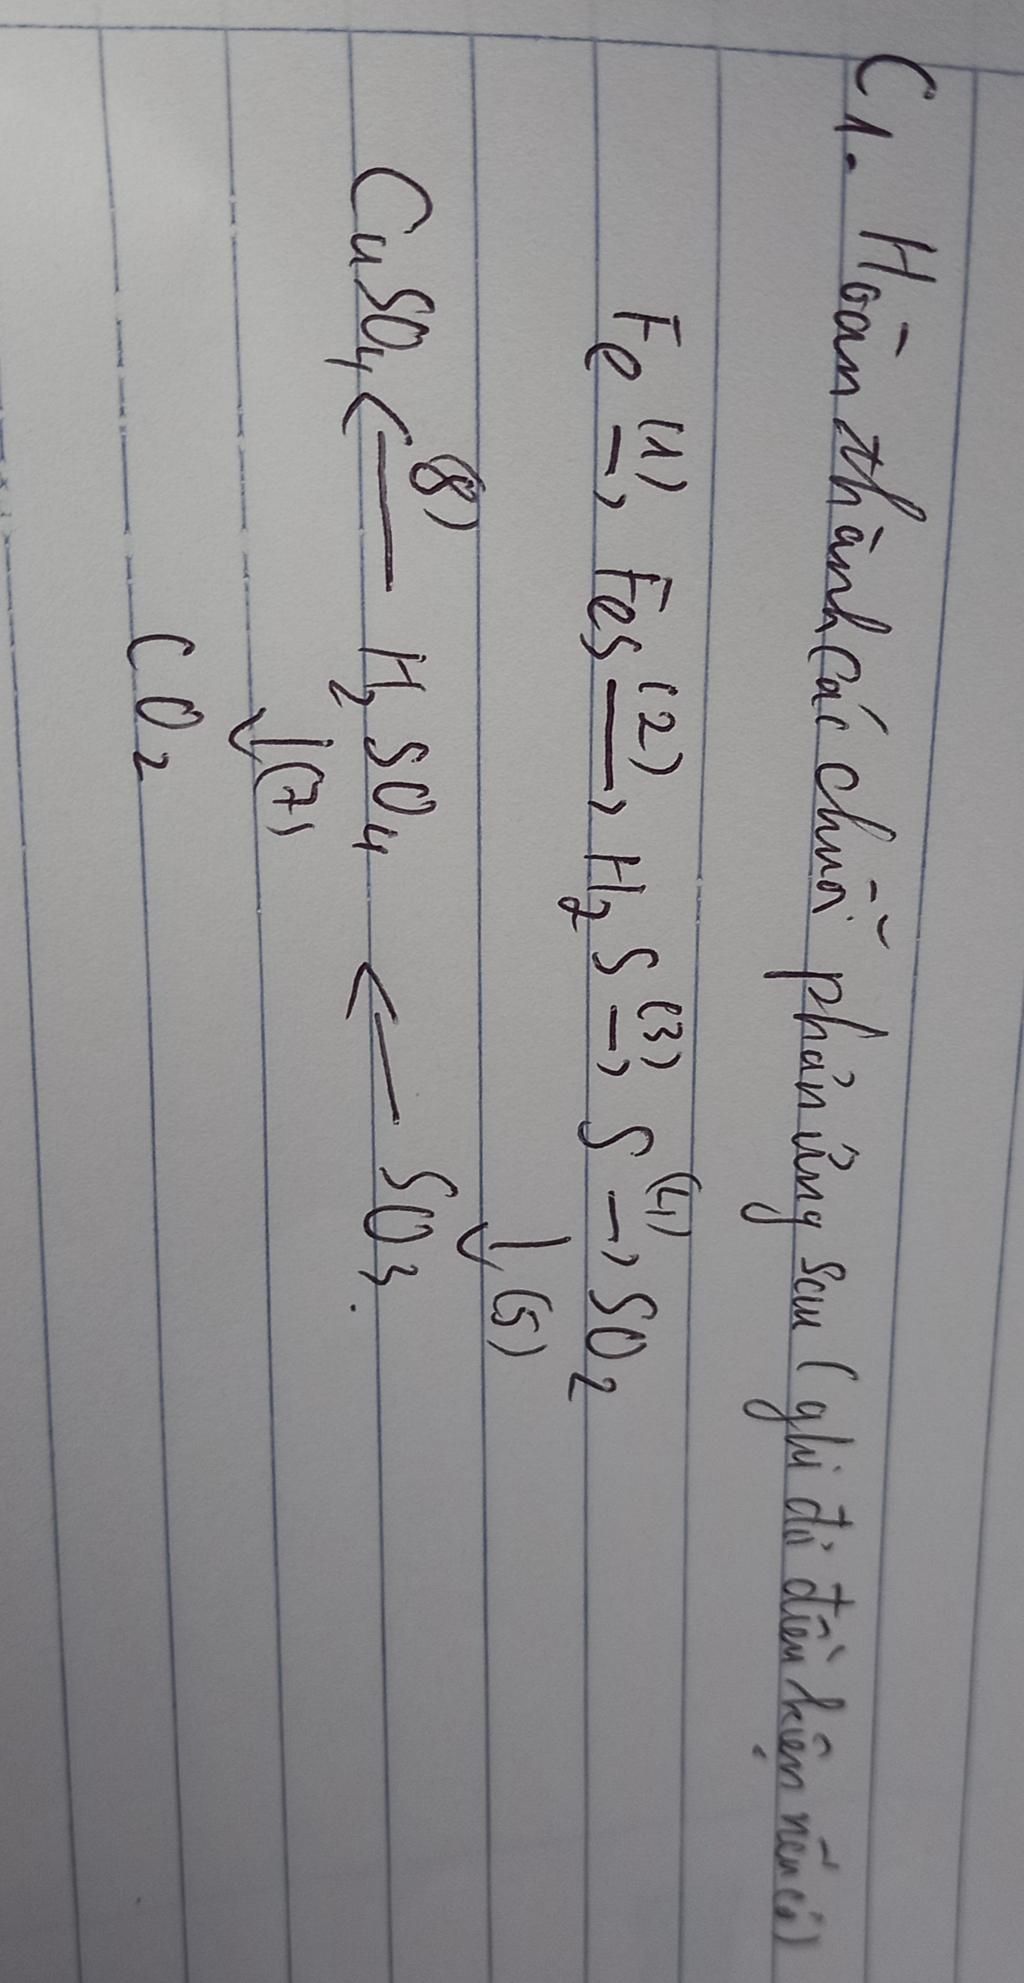 C1. Hoàn thành các chuỗi phản ứng sau (ghi đủ điều kiện nếu có)
Fe (1)→ FeS (2)→ H₂S (3)→ S (4)→ SO₂
↓ (5)
CuSO₄ ←(8) H₂SO₄ ← SO₃.
↓ (7)
CO₂